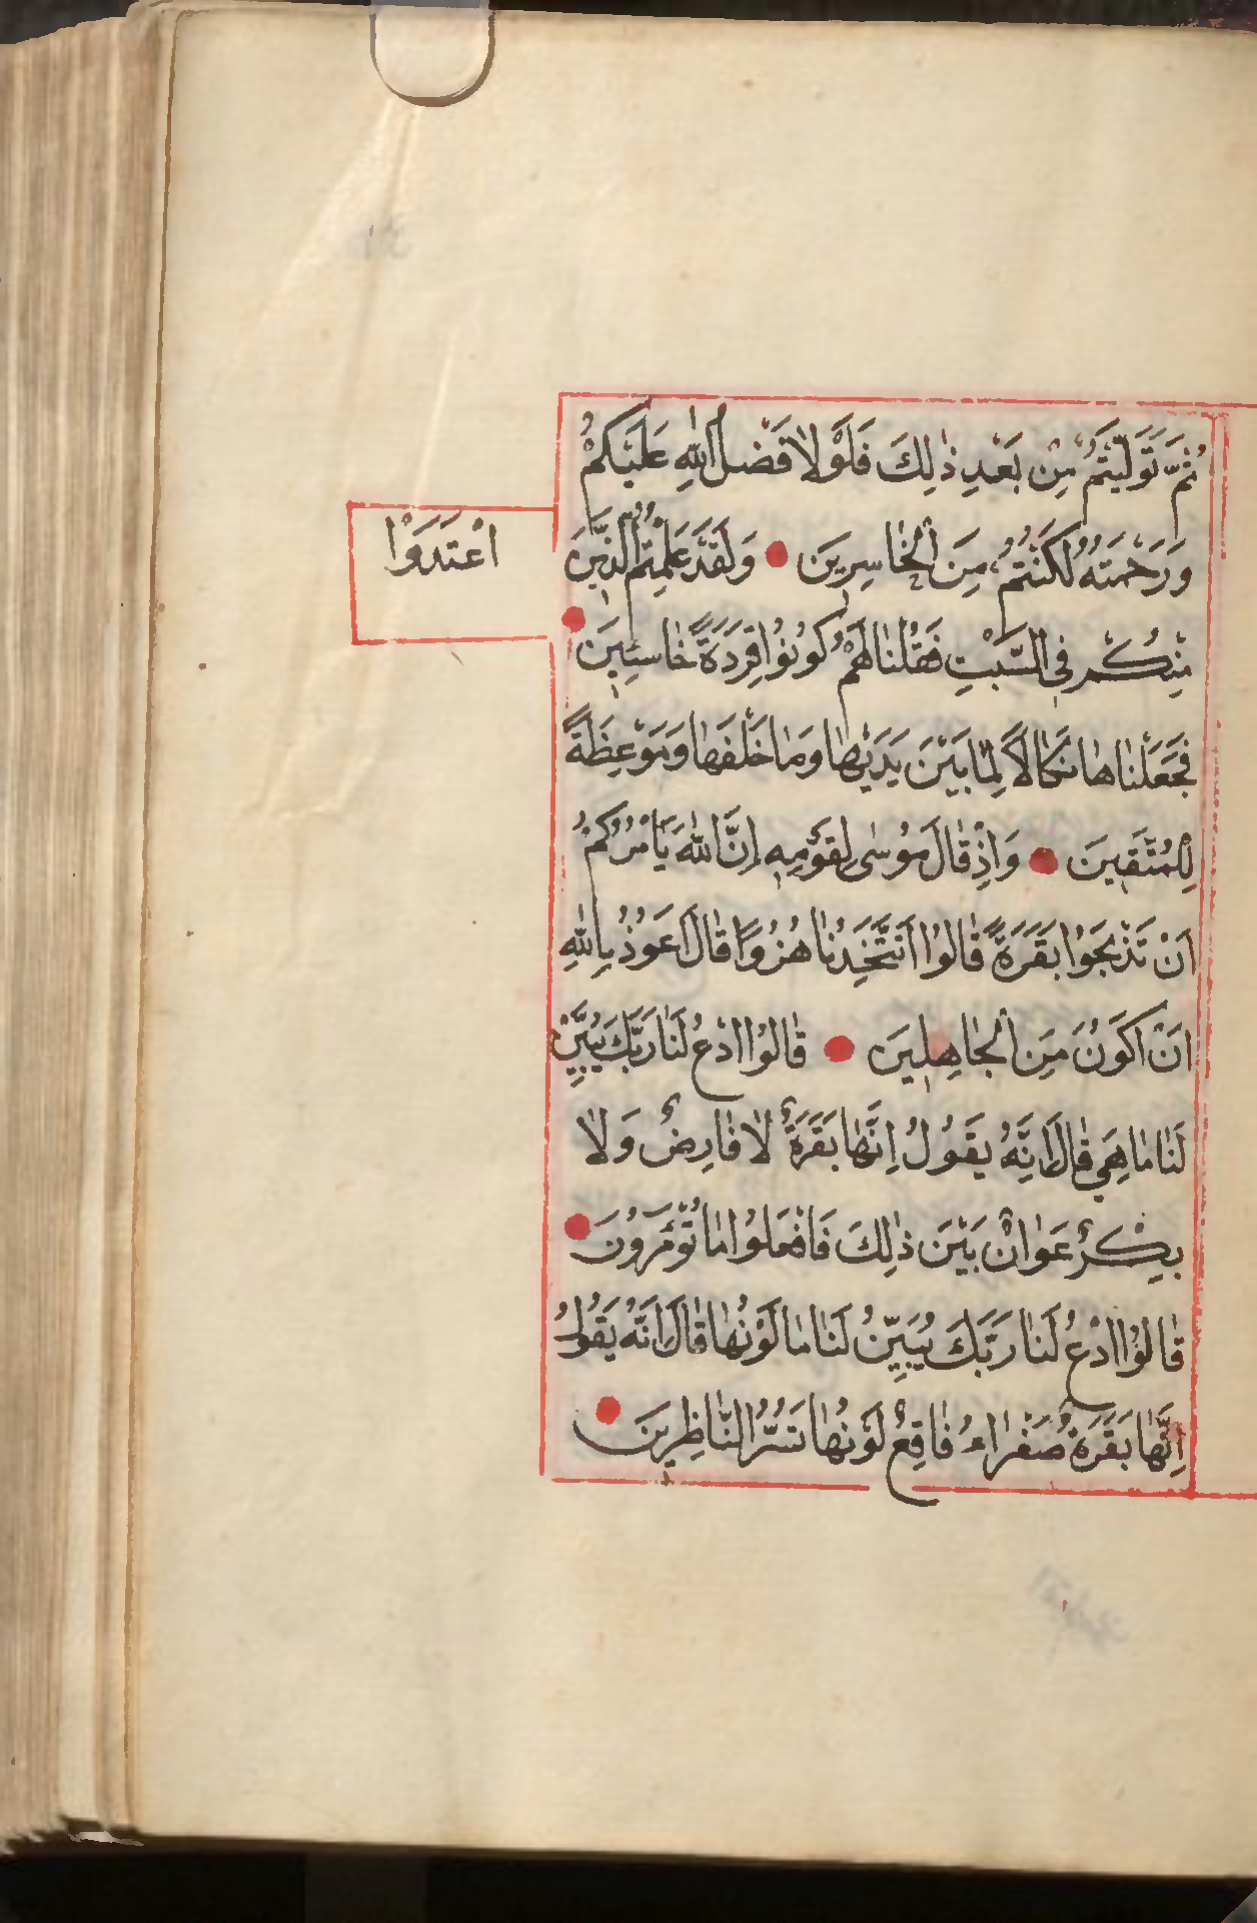 ثُمَّ تَوَلَّيْتُمْ مِنْ بَعْدِ ذٰلِكَ فَلَوْلَا فَضْلُ اللّٰهِ عَلَيْكُمْ
وَرَحْمَتُهُ لَكُنْتُمْ مِنَ الْخَاسِرِينَ ● وَلَقَدْ عَلِمْتُمُ الَّذِينَ
اعْتَدَوْا
مِنْكُمْ فِي السَّبْتِ فَقُلْنَا لَهُمْ كُونُوا قِرَدَةً خَاسِئِينَ ●
فَجَعَلْنَاهَا نَكَالًا لِمَا بَيْنَ يَدَيْهَا وَمَا خَلْفَهَا وَمَوْعِظَةً
لِلْمُتَّقِينَ ● وَاِذْ قَالَ مُوسٰى لِقَوْمِهِ اِنَّ اللّٰهَ يَأْمُرُكُمْ
اَنْ تَذْبَحُوا بَقَرَةً قَالُوا اَتَتَّخِذُنَا هُزُوًا قَالَ اَعُوذُ بِاللّٰهِ
اَنْ اَكُونَ مِنَ الْجَاهِلِينَ ● قَالُوا ادْعُ لَنَا رَبَّكَ يُبَيِّنْ
لَنَا مَا هِيَ قَالَ اِنَّهُ يَقُولُ اِنَّهَا بَقَرَةٌ لَا فَارِضٌ وَلَا
بِكْرٌ عَوَانٌ بَيْنَ ذٰلِكَ فَافْعَلُوا مَا تُؤْمَرُونَ ●
قَالُوا ادْعُ لَنَا رَبَّكَ يُبَيِّنْ لَنَا مَا لَوْنُهَا قَالَ اِنَّهُ يَقُولُ
اِنَّهَا بَقَرَةٌ صَفْرَاءُ فَاقِعٌ لَوْنُهَا تَسُرُّ النَّاظِرِينَ ●